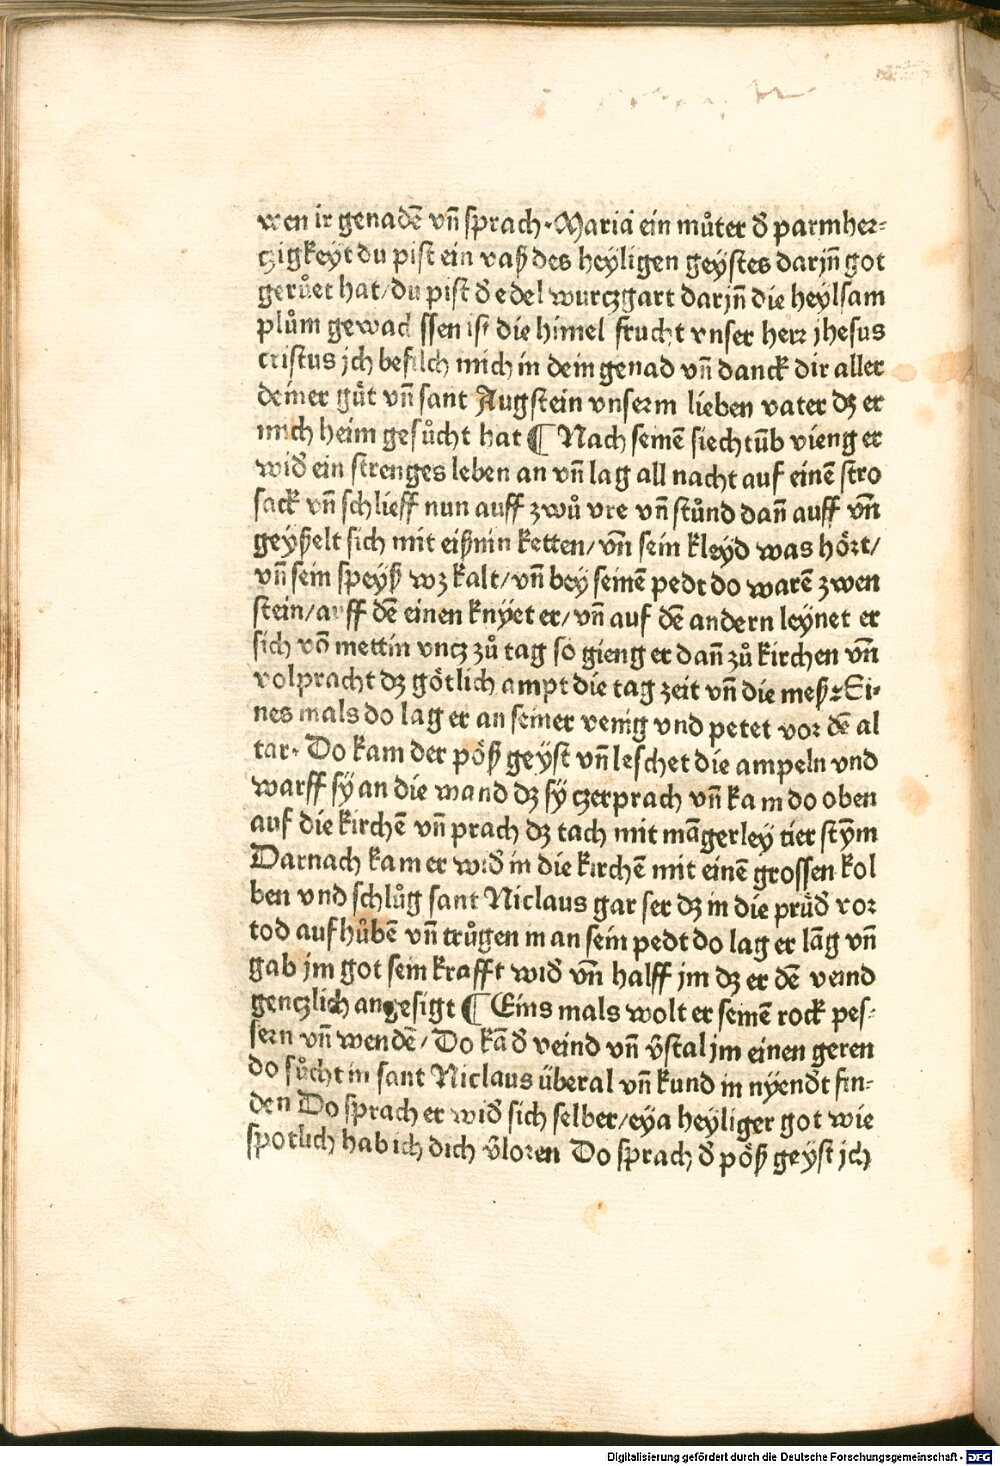 wen ir genadē vn̄ sprach·Maria ein můter ð parmher⸗
czigkeyt du pist ein vaß des heyligen geystes darjn̄ got
gerůet hat/du pist ð edel wurczgart darjn̄ die heylsam
plům gewachssen ist die himel frucht vnser herr jhesus
cristus jch befilch mich in dein genad vn̄ danck dir aller
deiner gu̇t vn̄ sant Augstein vnserm lieben vater dz er
mich heim gesůcht hat ¶ Nach seinē siechtūb vieng er
wið ein strenges leben an vn̄ lag all nacht auf einē stro
sack vn̄ schlieff nun auff zwů vre vn̄ stůnd dan̄ auff vn̄
geyßelt sich mit eißnin ketten/vn̄ sein kleyd was hört/
vn̄ sein speyß wz kalt/vn̄ bey seinē pedt do warē zwen
stein/auff dē einen knÿet er/vn̄ auf dē andern leynet er
sich vō mettin vncz zů tag so gieng er dan̄ zů kirchen vn̄
volpracht dz götlich ampt die tag zeit vn̄ die meß·Ei⸗
nes mals do lag er an seiner venig vnd petet vor dē al
tar· Do kam der pöß geyst vn̄ leschet die ampeln vnd
warff sÿ an die wand dz sÿ czerprach vn̄ kam do oben
auf die kirchē vn̄ prach dz tach mit māgerley tier stÿm
Darnach kam er wið in die kirchē mit einē grossen kol
ben vnd schlůg sant Niclaus gar ser dz in die prüð vor
tod aufhůbē vn̄ trůgen in an sein pedt do lag er lāg vn̄
gab jm got sein krafft wið vn̄ halff jm dz er dē veind
genczlich angesigt ¶ Eins mals wolt er seinē rock pes⸗
sern vn̄ wendē/ Do kā ð veind vn̄ v̄stal jm einen geren
do sůcht in sant Niclaus überal vn̄ kund in nyendt fin⸗
den Do sprach er wið sich selber/eya heyliger got wie
spotlich hab ich dich v̄loren Do sprach ð pöß geyst jch
Digitalisierung gefördert durch die Deutsche Forschungsgemeinschaft - DFG